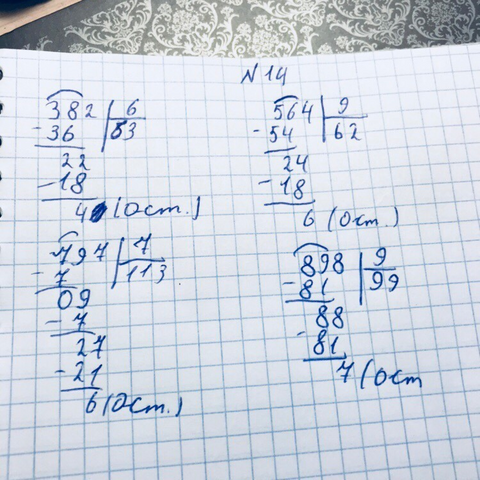 N 14
382 | 6
- 36 | 63
22
- 18
4 (Ост.)
564 | 9
- 54 | 62
24
- 18
6 (Ост.)
797 | 7
- 7 | 113
09
- 7
27
- 21
6 (Ост.)
898 | 9
- 81 | 99
88
- 81
7 (Ост